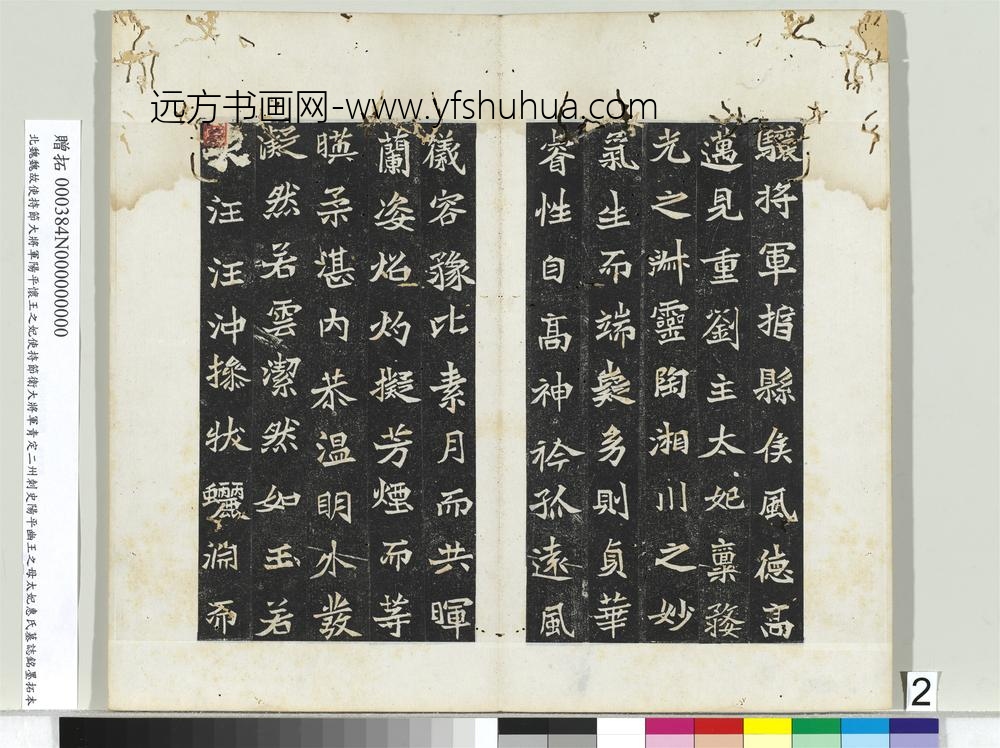 远方书画网-www.yfshuhua.com
驤將軍揟縣侯風德高
邁見重劉主太妃稟婺
光之淑靈陶湘川之妙
氣生而端嶷多則貞華
睿性自高神衿孤遠風
儀容豫比素月而共暉
蘭姿炤灼擬芳煙而等
暎柔湛內恭溫明外發
凝然若雲潔然如玉若
汪汪沖操狀驪淵而
贈拓 000384N000000000
北魏魏故使持節大將軍陽平懷王之妃使持節衛大將軍青定二州刺史陽平幽王之母太妃惠氏墓誌銘墨拓本
2